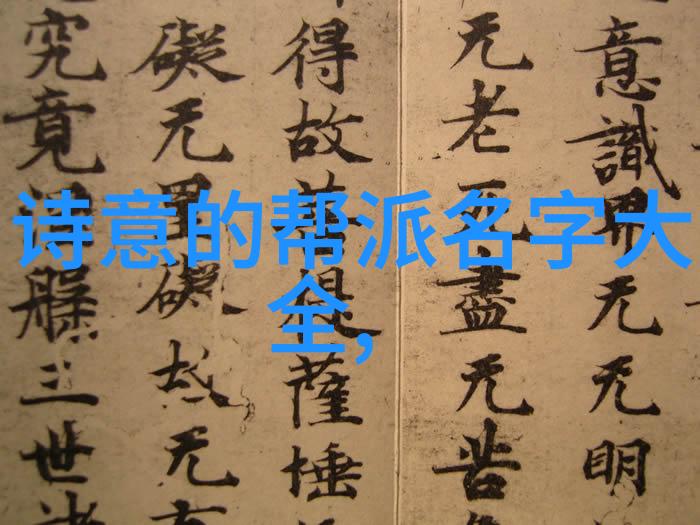 诗意的帮派名字大
全,
意識界无无明
无老死盡无苦
得故菩提薩埵
礙无罣礙故无有
究竟涅槃三世諸